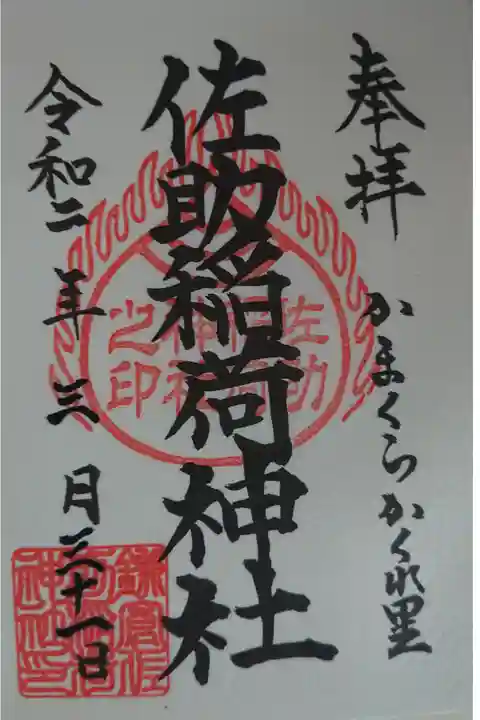 奉拝
かまくらかくれ里
佐助稲荷神社
佐助
稲荷
神社
之印
令和二年三月三十一日
鎌倉佐
助稲荷
神社印